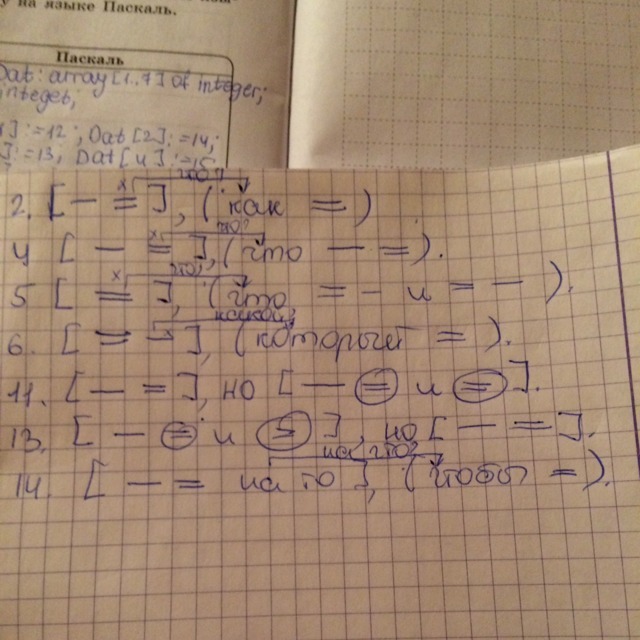 у на языке Паскаль.
Паскаль
Dat: array [1..7] of integer;
integer;
1] :=12; Dat[2] :=14;
] :=13; Dat[4] :=15
что?
2. [— =], (как =)
что?
4 [— =], (что — =).
что?
5 [=], (что = — и = —).
какой?
6. [= —], (который =).
11. [— =], но [— = и =].
13. [— = и =], но [— =].
на что?
14. [— = на то], (чтобы =).